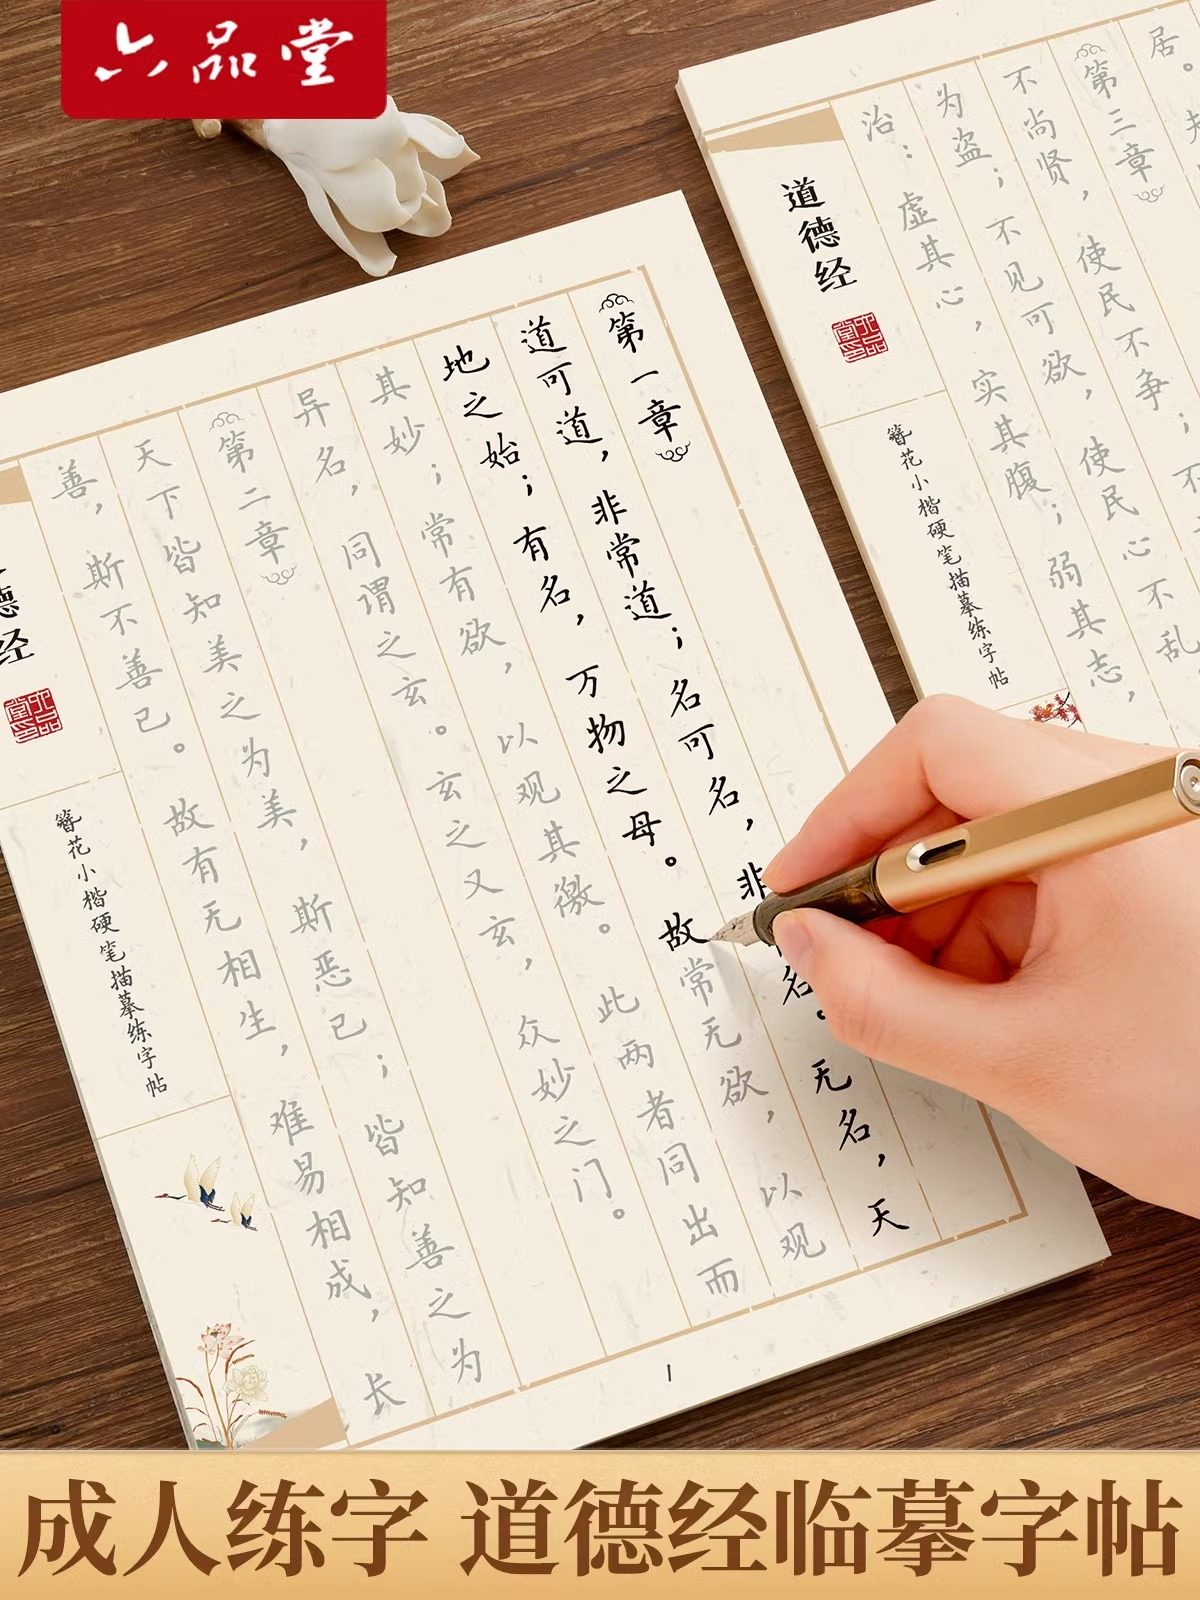 六品堂
居。
第三章
不尚贤，使民不争；不
为盗；不见可欲，使民心不乱
治：虚其心，实其腹；弱其志，
道德经
六品堂印
簪花小楷硬笔描摹练字帖
第一章
道可道，非常道；名可名，非名。无名，天
地之始；有名，万物之母。故常无欲，以观
其妙；常有欲，以观其徼。此两者同出而
异名，同谓之玄。玄之又玄，众妙之门。
第二章
天下皆知美之为美，斯恶已；皆知善之为
善，斯不善已。故有无相生，难易相成，长
德经
六品堂印
簪花小楷硬笔描摹练字帖
1
成人练字 道德经临摹字帖